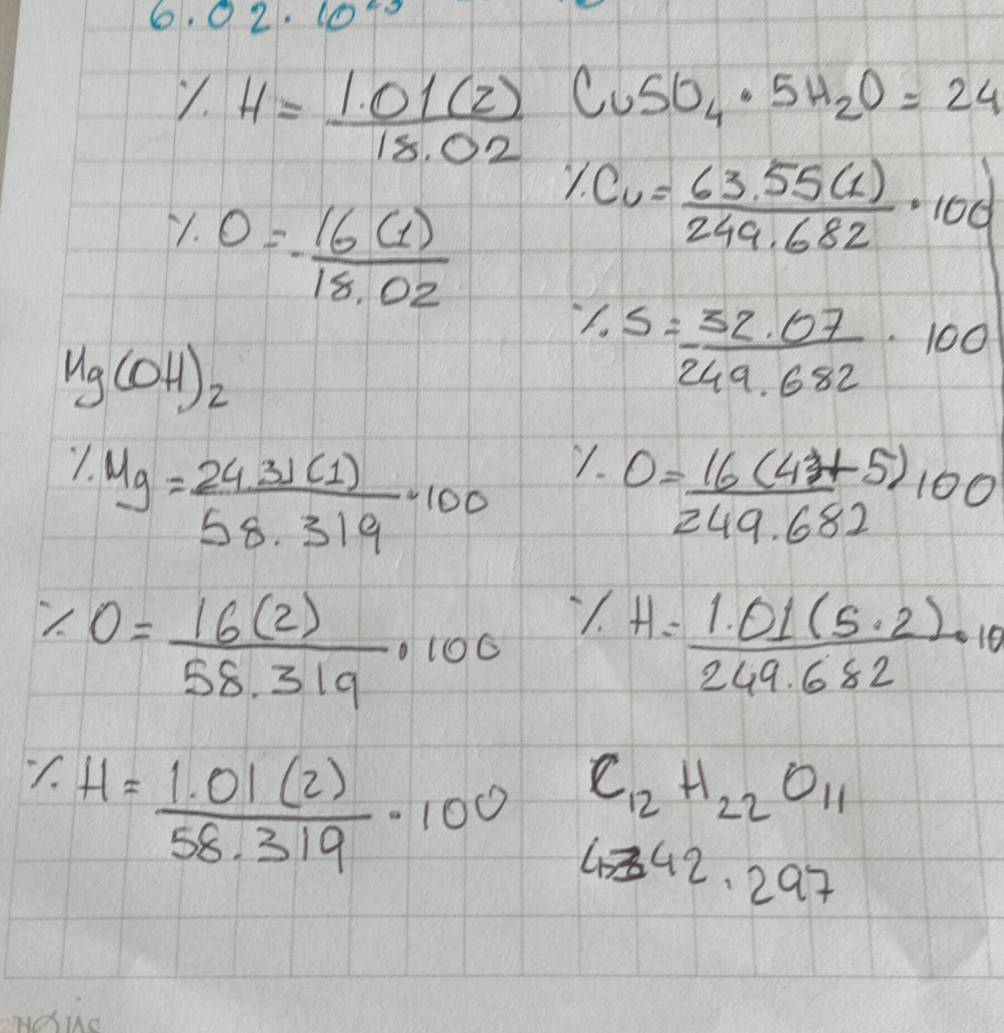 6.02.10²³
%. H = 1.01(2) / 18.02
%. O = 16(1) / 18.02
Mg(OH)₂
%. Mg = 24.31(1) / 58.319 · 100
%. O = 16(2) / 58.319 · 100
%. H = 1.01(2) / 58.319 · 100
CuSO₄ · 5H₂O = 24
%. Cu = 63.55(1) / 249.682 · 100
%. S = 32.07 / 249.682 · 100
%. O = 16(4+5) / 249.682 100
%. H = 1.01(5.2) / 249.682 · 10
C₁₂ H₂₂ O₁₁
342.297